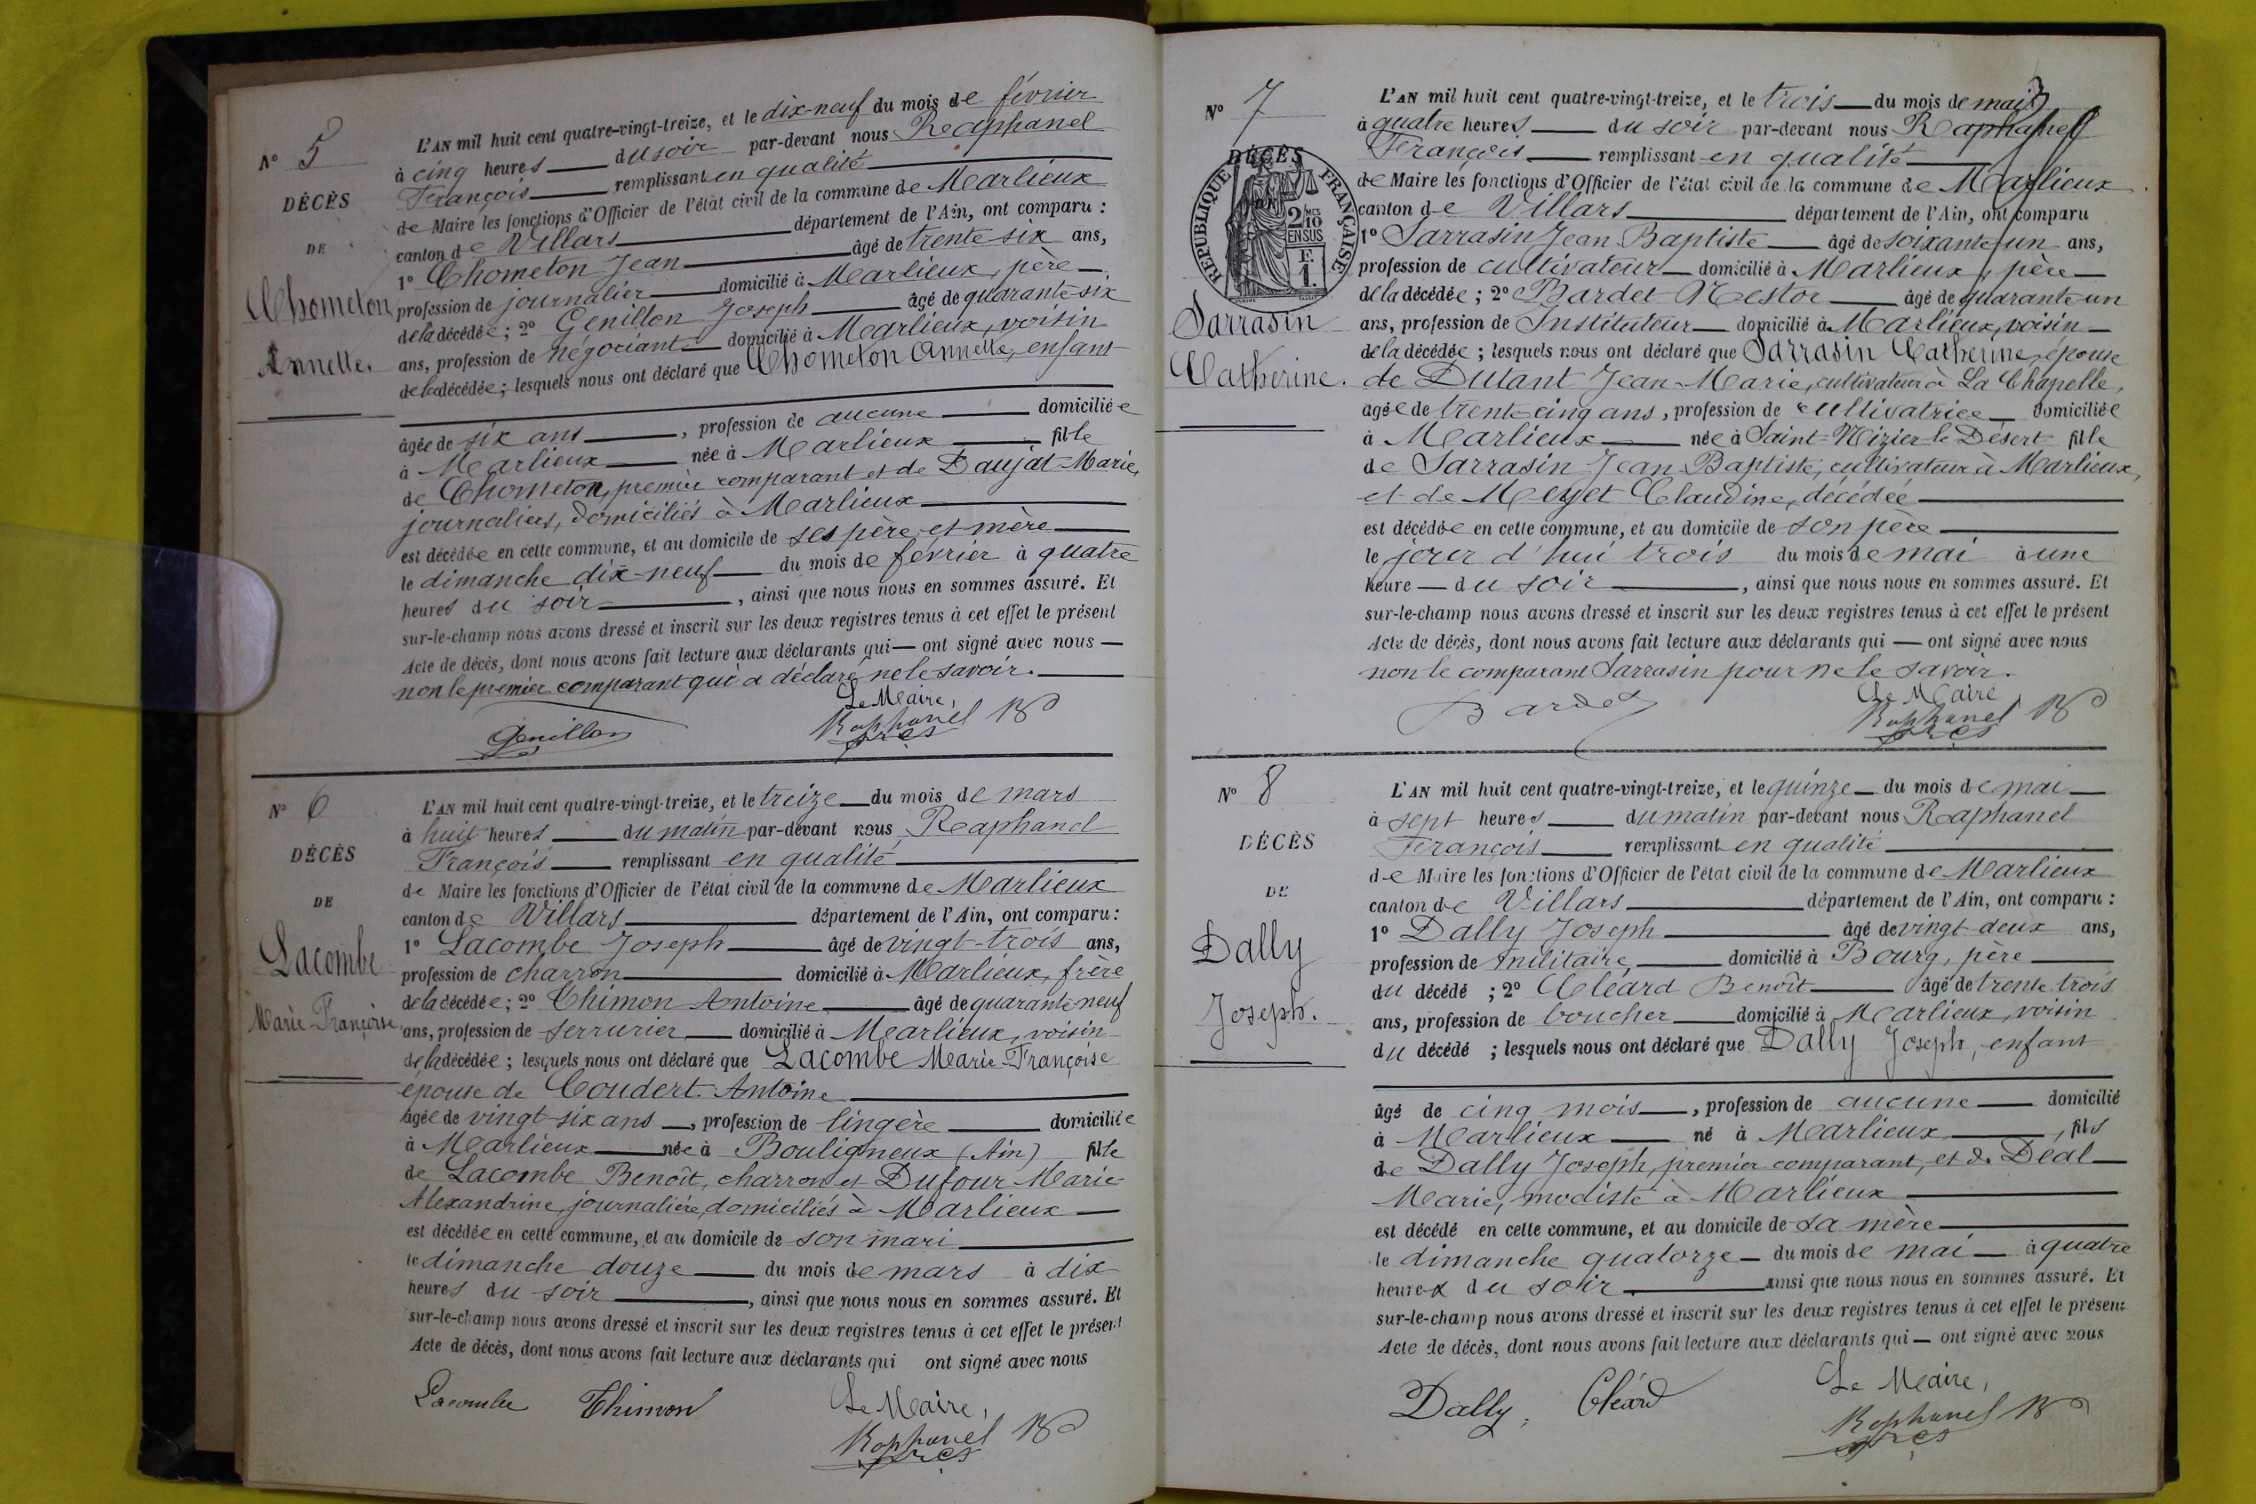 N° 5
DÉCÈS
DE
Chometon
Annette.
L'AN mil huit cent quatre-vingt-treize, et le dix-neuf du mois de février
à cinq heures du soir par-devant nous Raphanel
François remplissant en qualité
de Maire les fonctions d'Officier de l'état civil de la commune de Marlieux
canton de Villars département de l'Ain, ont comparu :
1° Chometon Jean âgé de trente-six ans,
profession de journalier domicilié à Marlieux, père
de la décédée ; 2° Genillon Joseph âgé de quarante-six
ans, profession de négociant domicilié à Marlieux, voisin
de la décédée ; lesquels nous ont déclaré que Chometon Annette, enfant
âgée de six ans, profession de aucune domiciliée
à Marlieux née à Marlieux fille
de Chometon, premier comparant et de Daujat Marie,
journaliers, domiciliés à Marlieux
est décédée en cette commune, et au domicile de ses père et mère
le dimanche dix-neuf du mois de février à quatre
heures du soir, ainsi que nous nous en sommes assuré. Et
sur-le-champ nous avons dressé et inscrit sur les deux registres tenus à cet effet le présent
Acte de décès, dont nous avons fait lecture aux déclarants qui — ont signé avec nous —
non le premier comparant qui a déclaré ne le savoir.
Le Maire,
Genillon Raphanel
fçois
N° 6
DÉCÈS
DE
Lacombe
Marie Françoise
L'AN mil huit cent quatre-vingt-treize, et le treize du mois de mars
à huit heures du matin par-devant nous Raphanel
François remplissant en qualité
de Maire les fonctions d'Officier de l'état civil de la commune de Marlieux
canton de Villars département de l'Ain, ont comparu :
1° Lacombe Joseph âgé de vingt-trois ans,
profession de charron domicilié à Marlieux, frère
de la décédée ; 2° Thimon Antoine âgé de quarante-neuf
ans, profession de serrurier domicilié à Marlieux, voisin
de la décédée ; lesquels nous ont déclaré que Lacombe Marie Françoise
épouse de Coudert Antoine
âgée de vingt-six ans, profession de lingère domiciliée
à Marlieux née à Bouligneux (Ain) fille
de Lacombe Benoît, charron et Dufour Marie
Alexandrine, journalière, domiciliés à Marlieux
est décédée en cette commune, et au domicile de son mari
le dimanche douze du mois de mars à dix
heures du soir, ainsi que nous nous en sommes assuré. Et
sur-le-champ nous avons dressé et inscrit sur les deux registres tenus à cet effet le présent
Acte de décès, dont nous avons fait lecture aux déclarants qui ont signé avec nous
Lacombe Thimon Le Maire,
Raphanel
fçois
3
N° 7
DÉCÈS
RÉPUBLIQUE FRANÇAISE
2/10 EN SUS
F. 1.
Sarrasin
Catherine.
L'AN mil huit cent quatre-vingt-treize, et le trois du mois de mai
à quatre heures du soir par-devant nous Raphanel
François remplissant en qualité
de Maire les fonctions d'Officier de l'état civil de la commune de Marlieux
canton de Villars département de l'Ain, ont comparu
1° Sarrasin Jean Baptiste âgé de soixante-un ans,
profession de cultivateur domicilié à Marlieux, père
de la décédée ; 2° Bardet Nestor âgé de quarante-un
ans, profession de Instituteur domicilié à Marlieux, voisin
de la décédée ; lesquels nous ont déclaré que Sarrasin Catherine, épouse
de Dutant Jean-Marie, cultivateur à La Chapelle,
âgée de trente-cinq ans, profession de cultivatrice domiciliée
à Marlieux née à Saint-Nizier-le-Désert fille
de Sarrasin Jean Baptiste, cultivateur à Marlieux,
et de Meyet Claudine, décédée
est décédée en cette commune, et au domicile de son père
le jour d'hui trois du mois de mai à une
heure du soir, ainsi que nous nous en sommes assuré. Et
sur-le-champ nous avons dressé et inscrit sur les deux registres tenus à cet effet le présent
Acte de décès, dont nous avons fait lecture aux déclarants qui — ont signé avec nous
non le comparant Sarrasin pour ne le savoir.
Bardet Le Maire,
Raphanel
fçois
N° 8
DÉCÈS
DE
Dally
Joseph.
L'AN mil huit cent quatre-vingt-treize, et le quinze du mois de mai
à sept heures du matin par-devant nous Raphanel
François remplissant en qualité
de Maire les fonctions d'Officier de l'état civil de la commune de Marlieux
canton de Villars département de l'Ain, ont comparu :
1° Dally Joseph âgé de vingt-deux ans,
profession de militaire, domicilié à Bourg, père
du décédé ; 2° Cléard Benoît âgé de trente trois
ans, profession de boucher domicilié à Marlieux, voisin
du décédé ; lesquels nous ont déclaré que Dally Joseph, enfant
âgé de cinq mois, profession de aucune domicilié
à Marlieux né à Marlieux, fils
de Dally Joseph, premier comparant, et de Déal
Marie, modiste à Marlieux
est décédé en cette commune, et au domicile de sa mère
le dimanche quatorze du mois de mai à quatre
heures du soir, ainsi que nous nous en sommes assuré. Et
sur-le-champ nous avons dressé et inscrit sur les deux registres tenus à cet effet le présent
Acte de décès, dont nous avons fait lecture aux déclarants qui — ont signé avec nous
Dally, Cléard Le Maire,
Raphanel
fçois